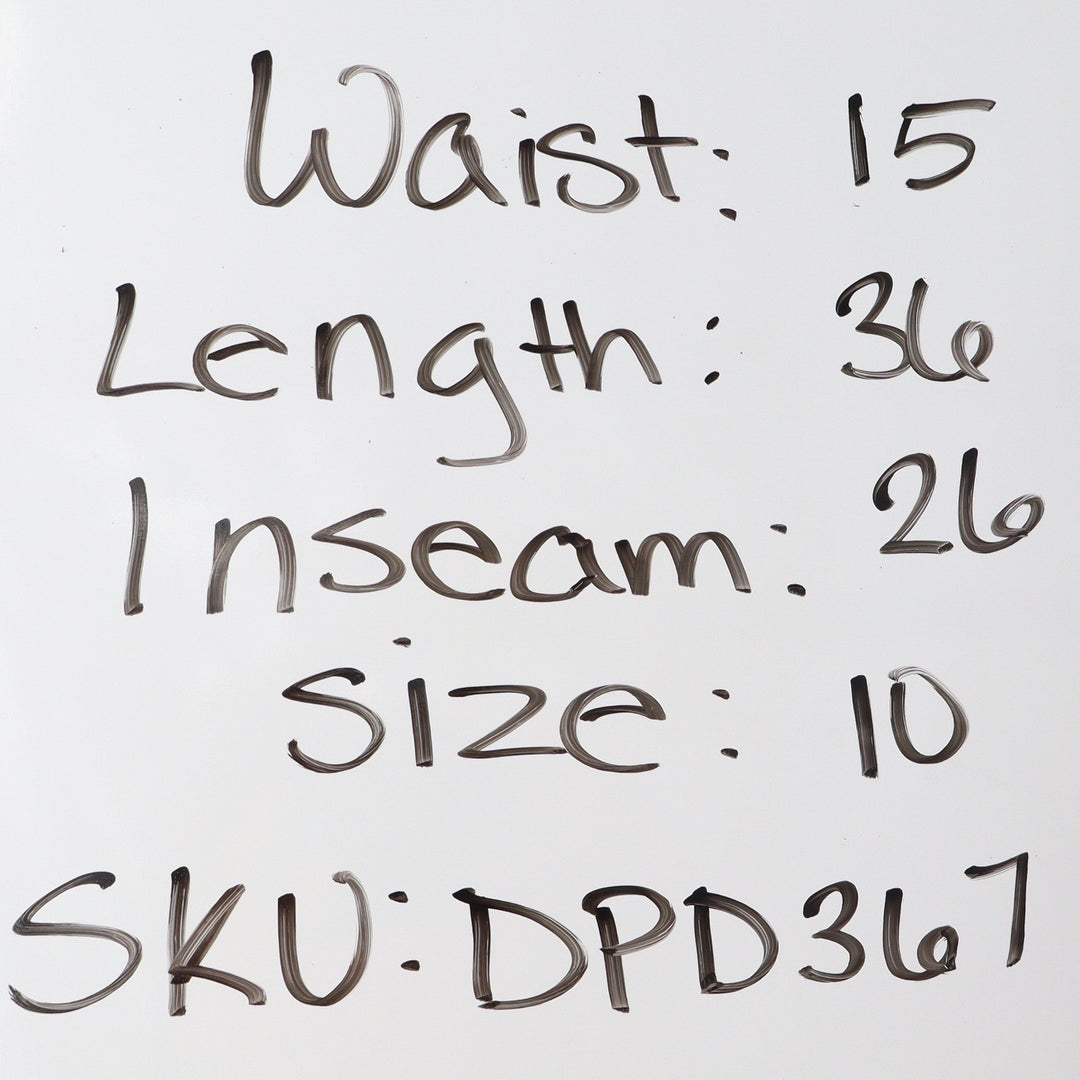 Waist: 15
Length: 36
Inseam: 26
Size: 10
SKU: DPD367